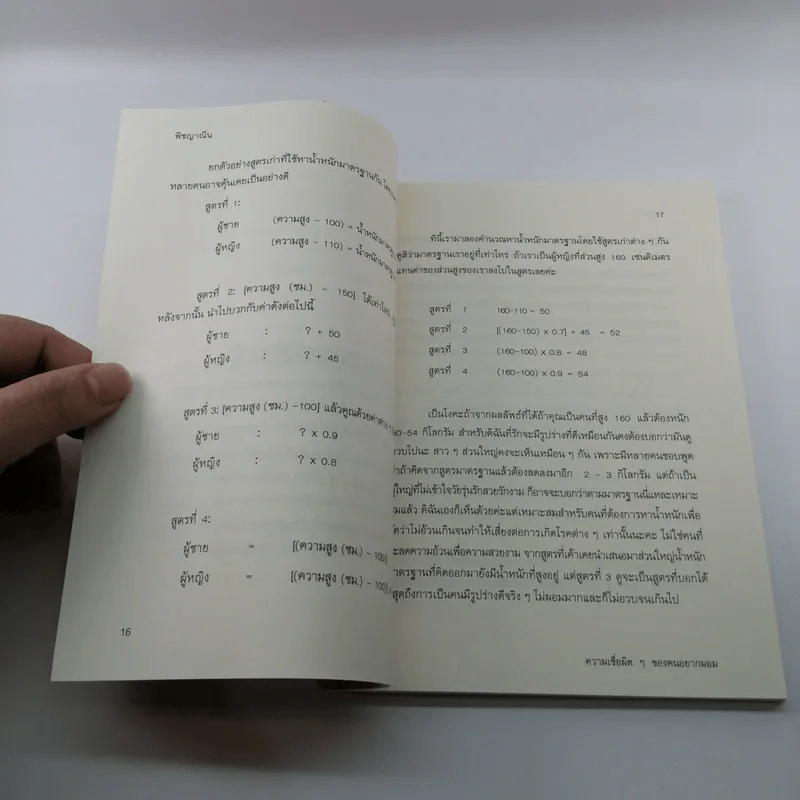 พิชญาณีน
ยกตัวอย่างสูตรเก่าที่ใช้หาน้ำหนักมาตรฐานกัน
หลายคนอาจคุ้นเคยเป็นอย่างดี
สูตรที่ 1:
ผู้ชาย (ความสูง - 100) = น้ำหนักมาตรฐาน
ผู้หญิง (ความสูง - 110) = น้ำหนักมาตรฐาน
สูตรที่ 2: [ความสูง (ซม.) - 150] ได้เท่าไหร่
หลังจากนั้น นำไปบวกกับค่าดังต่อไปนี้
ผู้ชาย : ? + 50
ผู้หญิง : ? + 45
สูตรที่ 3: [ความสูง (ซม.) -100] แล้วคูณด้วยค่าต่าง
ผู้ชาย : ? x 0.9
ผู้หญิง : ? x 0.8
สูตรที่ 4:
ผู้ชาย = [(ความสูง (ซม.) - 100)]
ผู้หญิง = [(ความสูง (ซม.) - 100)]
16
17
ทีนี้เรามาลองคำนวณหาน้ำหนักมาตรฐานโดยใช้สูตรเก่าต่าง ๆ กัน
ดูสิว่ามาตรฐานเราอยู่ที่เท่าไหร่ ถ้าเราเป็นผู้หญิงที่ส่วนสูง 160 เซนติเมตร
แทนค่าของส่วนสูงของเราลงไปในสูตรเลยค่ะ
สูตรที่ 1 160-110 = 50
สูตรที่ 2 [(160-150) x 0.7] + 45 = 52
สูตรที่ 3 (160-100) x 0.8 = 48
สูตรที่ 4 (160-100) x 0.9 = 54
เป็นไงคะถ้าจากผลลัพธ์ที่ได้ถ้าคุณเป็นคนที่สูง 160 แล้วต้องหนัก
50-54 กิโลกรัม สำหรับดิฉันที่รักจะมีรูปร่างที่ดีเหมือนกันคงต้องบอกว่ามันดู
อวบไปนะ สาว ๆ ส่วนใหญ่คงจะเห็นเหมือน ๆ กัน เพราะมีหลายคนชอบพูด
ว่าถ้าคิดจากสูตรมาตรฐานแล้วต้องลดลงมาอีก 2 - 3 กิโลกรัม แต่ถ้าเป็น
ผู้ใหญ่ที่ไม่เข้าใจวัยรุ่นรักสวยรักงาม ก็อาจจะบอกว่าตามมาตรฐานนี่แหละเหมาะ
สมแล้ว ดิฉันเองก็เห็นด้วยค่ะแต่เหมาะสมสำหรับคนที่ต้องการหาน้ำหนักเพื่อ
ว่าไม่อ้วนเกินจนทำให้เสี่ยงต่อการเกิดโรคต่าง ๆ เท่านั้นนะคะ ไม่ใช่คนที่
จะลดความอ้วนเพื่อความสวยงาม จากสูตรที่เค้าเคยนำเสนอมาส่วนใหญ่น้ำหนัก
มาตรฐานที่คิดออกมายังมีน้ำหนักที่สูงอยู่ แต่สูตรที่ 3 ดูจะเป็นสูตรที่บอกได้
สุดถึงการเป็นคนมีรูปร่างดีจริง ๆ ไม่ผอมมากและก็ไม่อวบจนเกินไป
ความเชื่อผิด ๆ ของคนอยากผอม